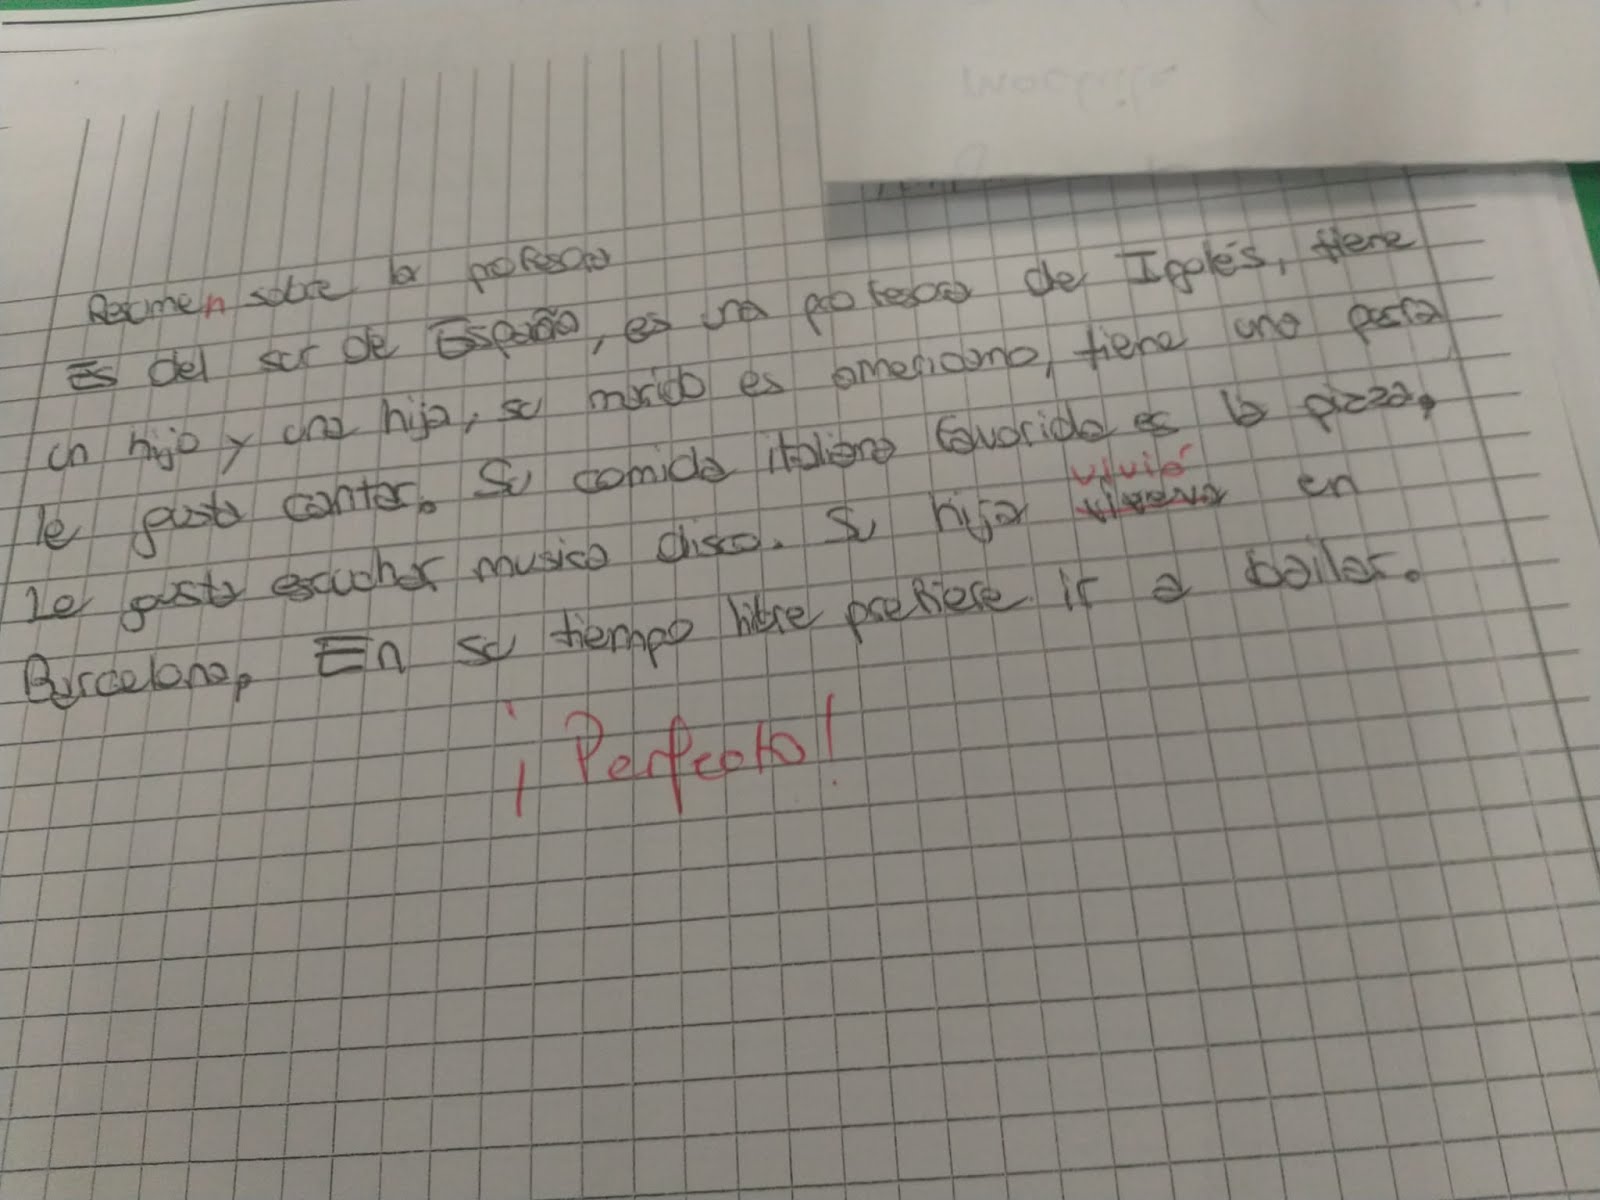 Resumen sobre la profesora
Es del sur de España, es una profesora de Igolés, tiene
un hijo y una hija, su marido es americano, tiene una perra
le gusta cantar. Su comida italiana favorida es la pizza,
vivió
Le gusta escuchar musica disco. Su hija en
Barcelona, En su tiempo libre prefiere ir a bailar.
¡Perfecto!